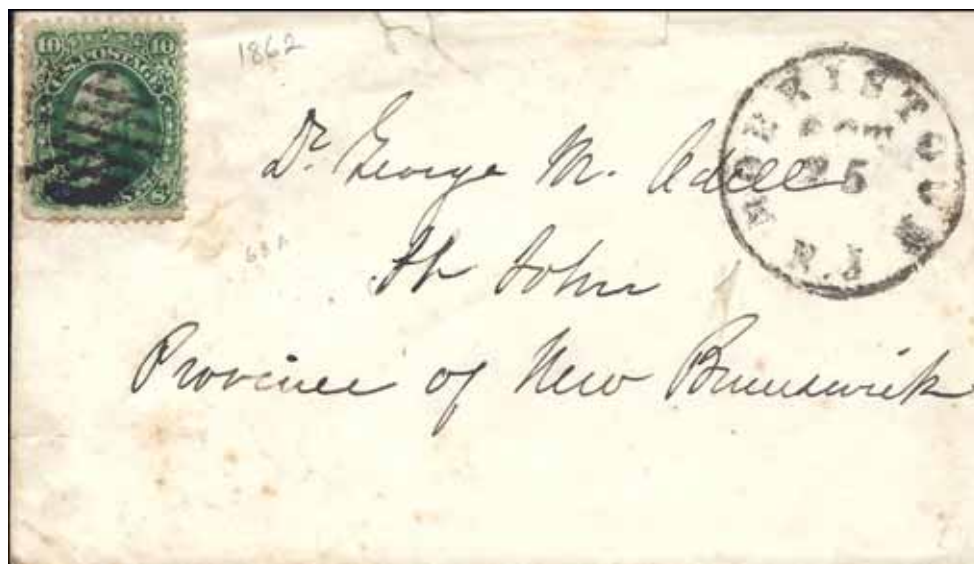 10 10
U.S. POSTAGE
1862
MORRISTOWN
25
N.J
Dr. George M. Odell
St John
Province of New Brunswick